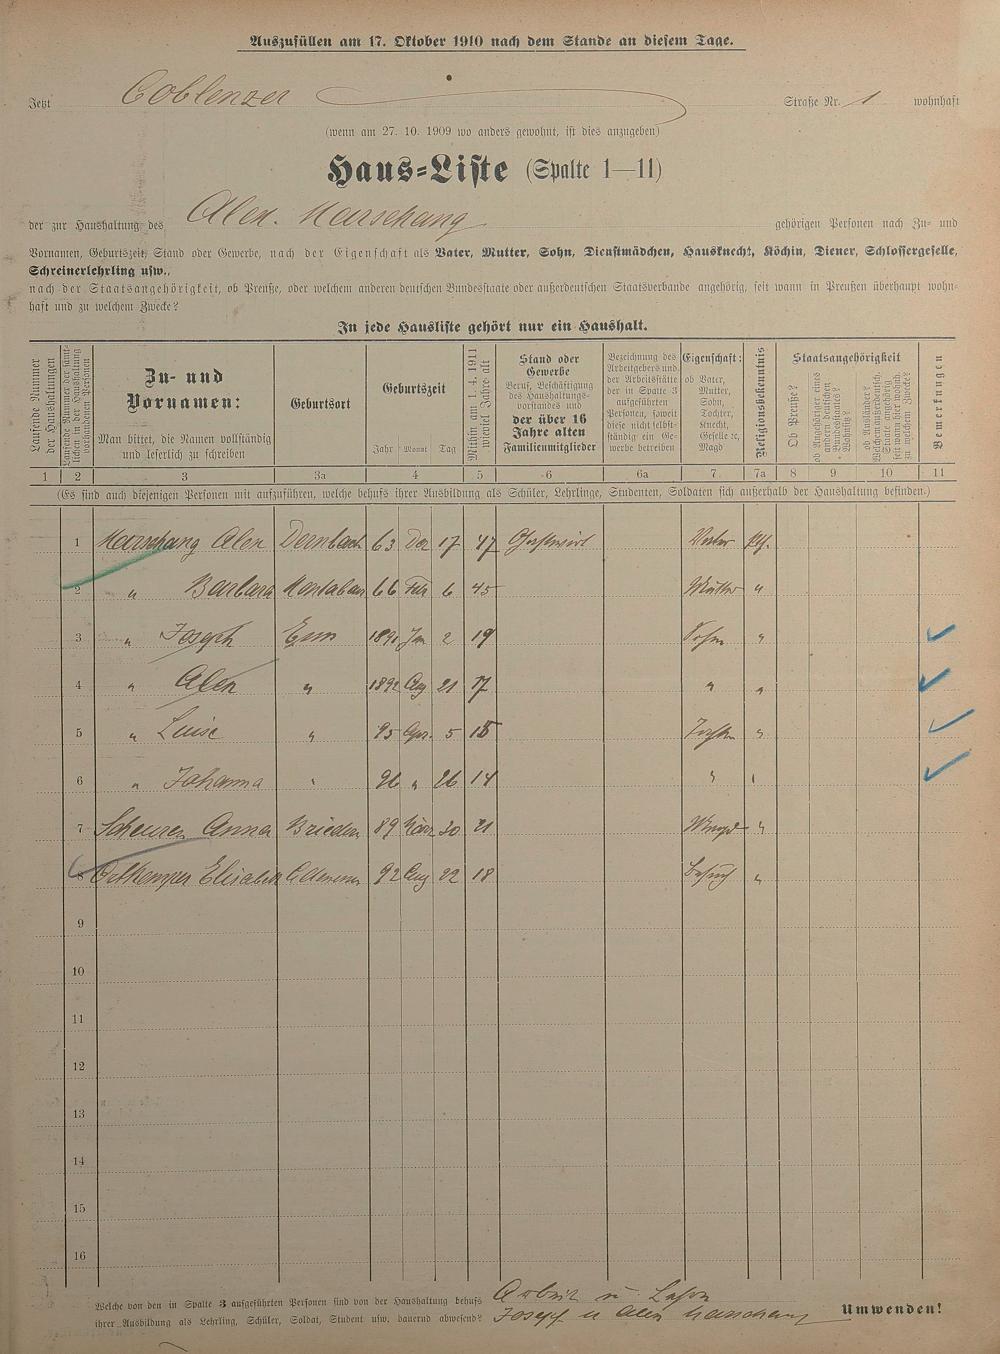 Auszufüllen am 17. Oktober 1910 nach dem Stande an diesem Tage.
Jetzt Coblenzer Straße Nr. 1 wohnhaft
(wenn am 27. 10. 1909 wo anders gewohnt, ist dies anzugeben)
Haus-Liste (Spalte 1—11)
der zur Haushaltung des Alex. Marschang gehörigen Personen nach Zu- und
Vornamen, Geburtszeit, Stand oder Gewerbe, nach der Eigenschaft als Vater, Mutter, Sohn, Dienstmädchen, Hausknecht, Köchin, Diener, Schlossergeselle,
Schreinerlehrling usw.,
nach der Staatsangehörigkeit, ob Preuße, oder welchem anderen deutschen Bundesstaate oder außerdeutschen Staatsverbande angehörig, seit wann in Preußen überhaupt wohn-
haft und zu welchem Zwecke?
In jede Hausliste gehört nur ein Haushalt.
Laufende Nummer der Haushaltungen
Laufende Nummer der sämt-
lichen in der Haushaltung
vorhandenen Personen
Zu- und
Vornamen:
Man bittet, die Namen vollständig
und leserlich zu schreiben
Geburtsort
Geburtszeit
Jahr Monat Tag
Mithin am 1. 4. 1911
wieviel Jahre alt
Stand oder
Gewerbe
Beruf, Beschäftigung
des Haushaltungs-
vorstandes und
der über 16
Jahre alten
Familienmitglieder
Bezeichnung des
Arbeitgebers und
der Arbeitsstätte
der in Spalte 3
aufgeführten
Personen, soweit
diese nicht selbst-
ständig ein Ge-
werbe betreiben
Eigenschaft:
ob Vater,
Mutter,
Sohn,
Tochter,
Knecht,
Geselle ec,
Magd
Religionsbekenntnis
Staatsangehörigkeit
Ob Preuße?
ob Angehöriger eines
andern deutschen
Bundesstaates?
Wohnsitz?
ob Ausländer?
Welchem außerdeutsch.
Staate angehörig
seit wann hier wohnh.
zu welchem Zwecke?
Bemerkungen
1 2 3 3a 4 5 6 6a 7 7a 8 9 10 11
(Es sind auch diejenigen Personen mit aufzuführen, welche behufs ihrer Ausbildung als Schüler, Lehrlinge, Studenten, Soldaten sich außerhalb der Haushaltung befinden.)
1 Marschang Alex Dernbach 63 Dez 17 47 Gastwirt Vater kth.
2 " Barbara Montabaur 66 Feb 6 45 Mutter "
3 " Joseph Ems 1891 Jan 2 19 Sohn "
4 " Alex " 1892 Aug 21 17 " "
5 " Luise " 95 Apr. 5 15 Tochter "
6 " Johanna " 96 " 26 14 " "
7 Scheuren Anna Brieden 89 März 30 21 Magd "
8 Ortkemper Elisabeth 92 Aug 22 18 Besuch "
9
10
11
12
13
14
15
16
Welche von den in Spalte 3 aufgeführten Personen sind von der Haushaltung behufs
ihrer Ausbildung als Lehrling, Schüler, Soldat, Student usw. dauernd abwesend?
Josepf u Alex Marschang
Umwenden!